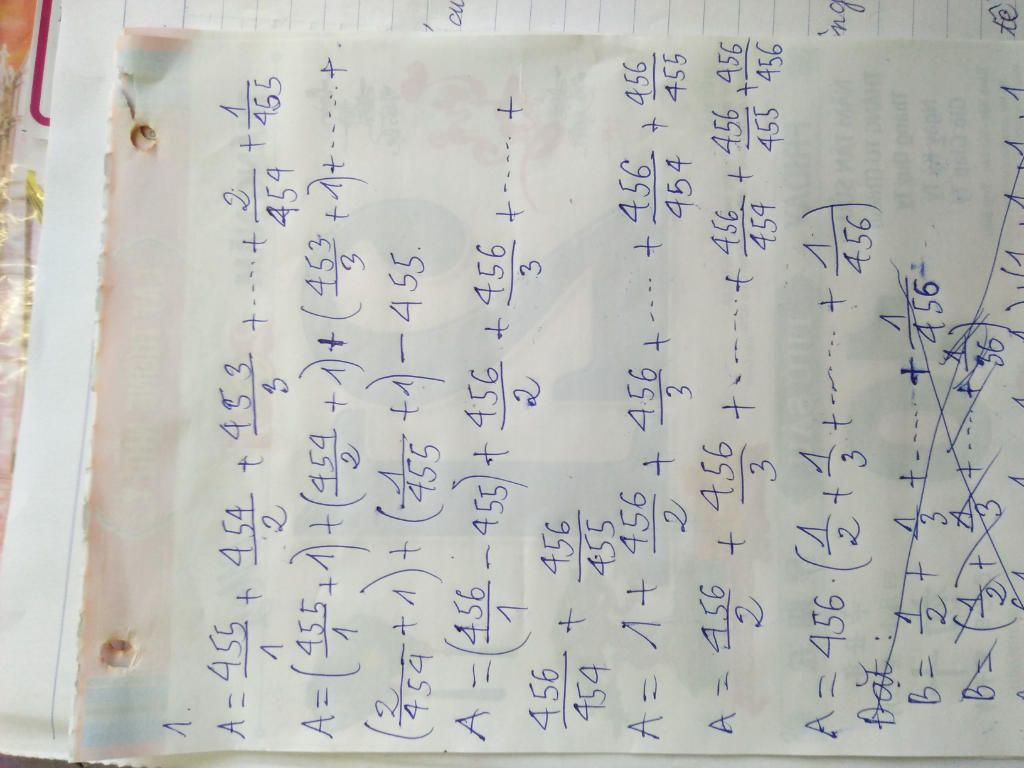 1.
A = 455/1 + 454/2 + 453/3 + ..... + 2/454 + 1/455
A = (455/1 + 1) + (454/2 + 1) + (453/3 + 1) + ...... +
(2/454 + 1) + (1/455 + 1) - 455.
A = (456/1 - 455) + 456/2 + 456/3 + ..... +
456/454 + 456/455
A = 1 + 456/2 + 456/3 + ..... + 456/454 + 456/455
A = 456/2 + 456/3 + ...... + 456/454 + 456/455 + 456/456
A = 456 . (1/2 + 1/3 + ...... + 1/456)
Đặt:
B = 1/2 + 1/3 + ...... + 1/456
B = (1/2 + 1/3 + ..... +